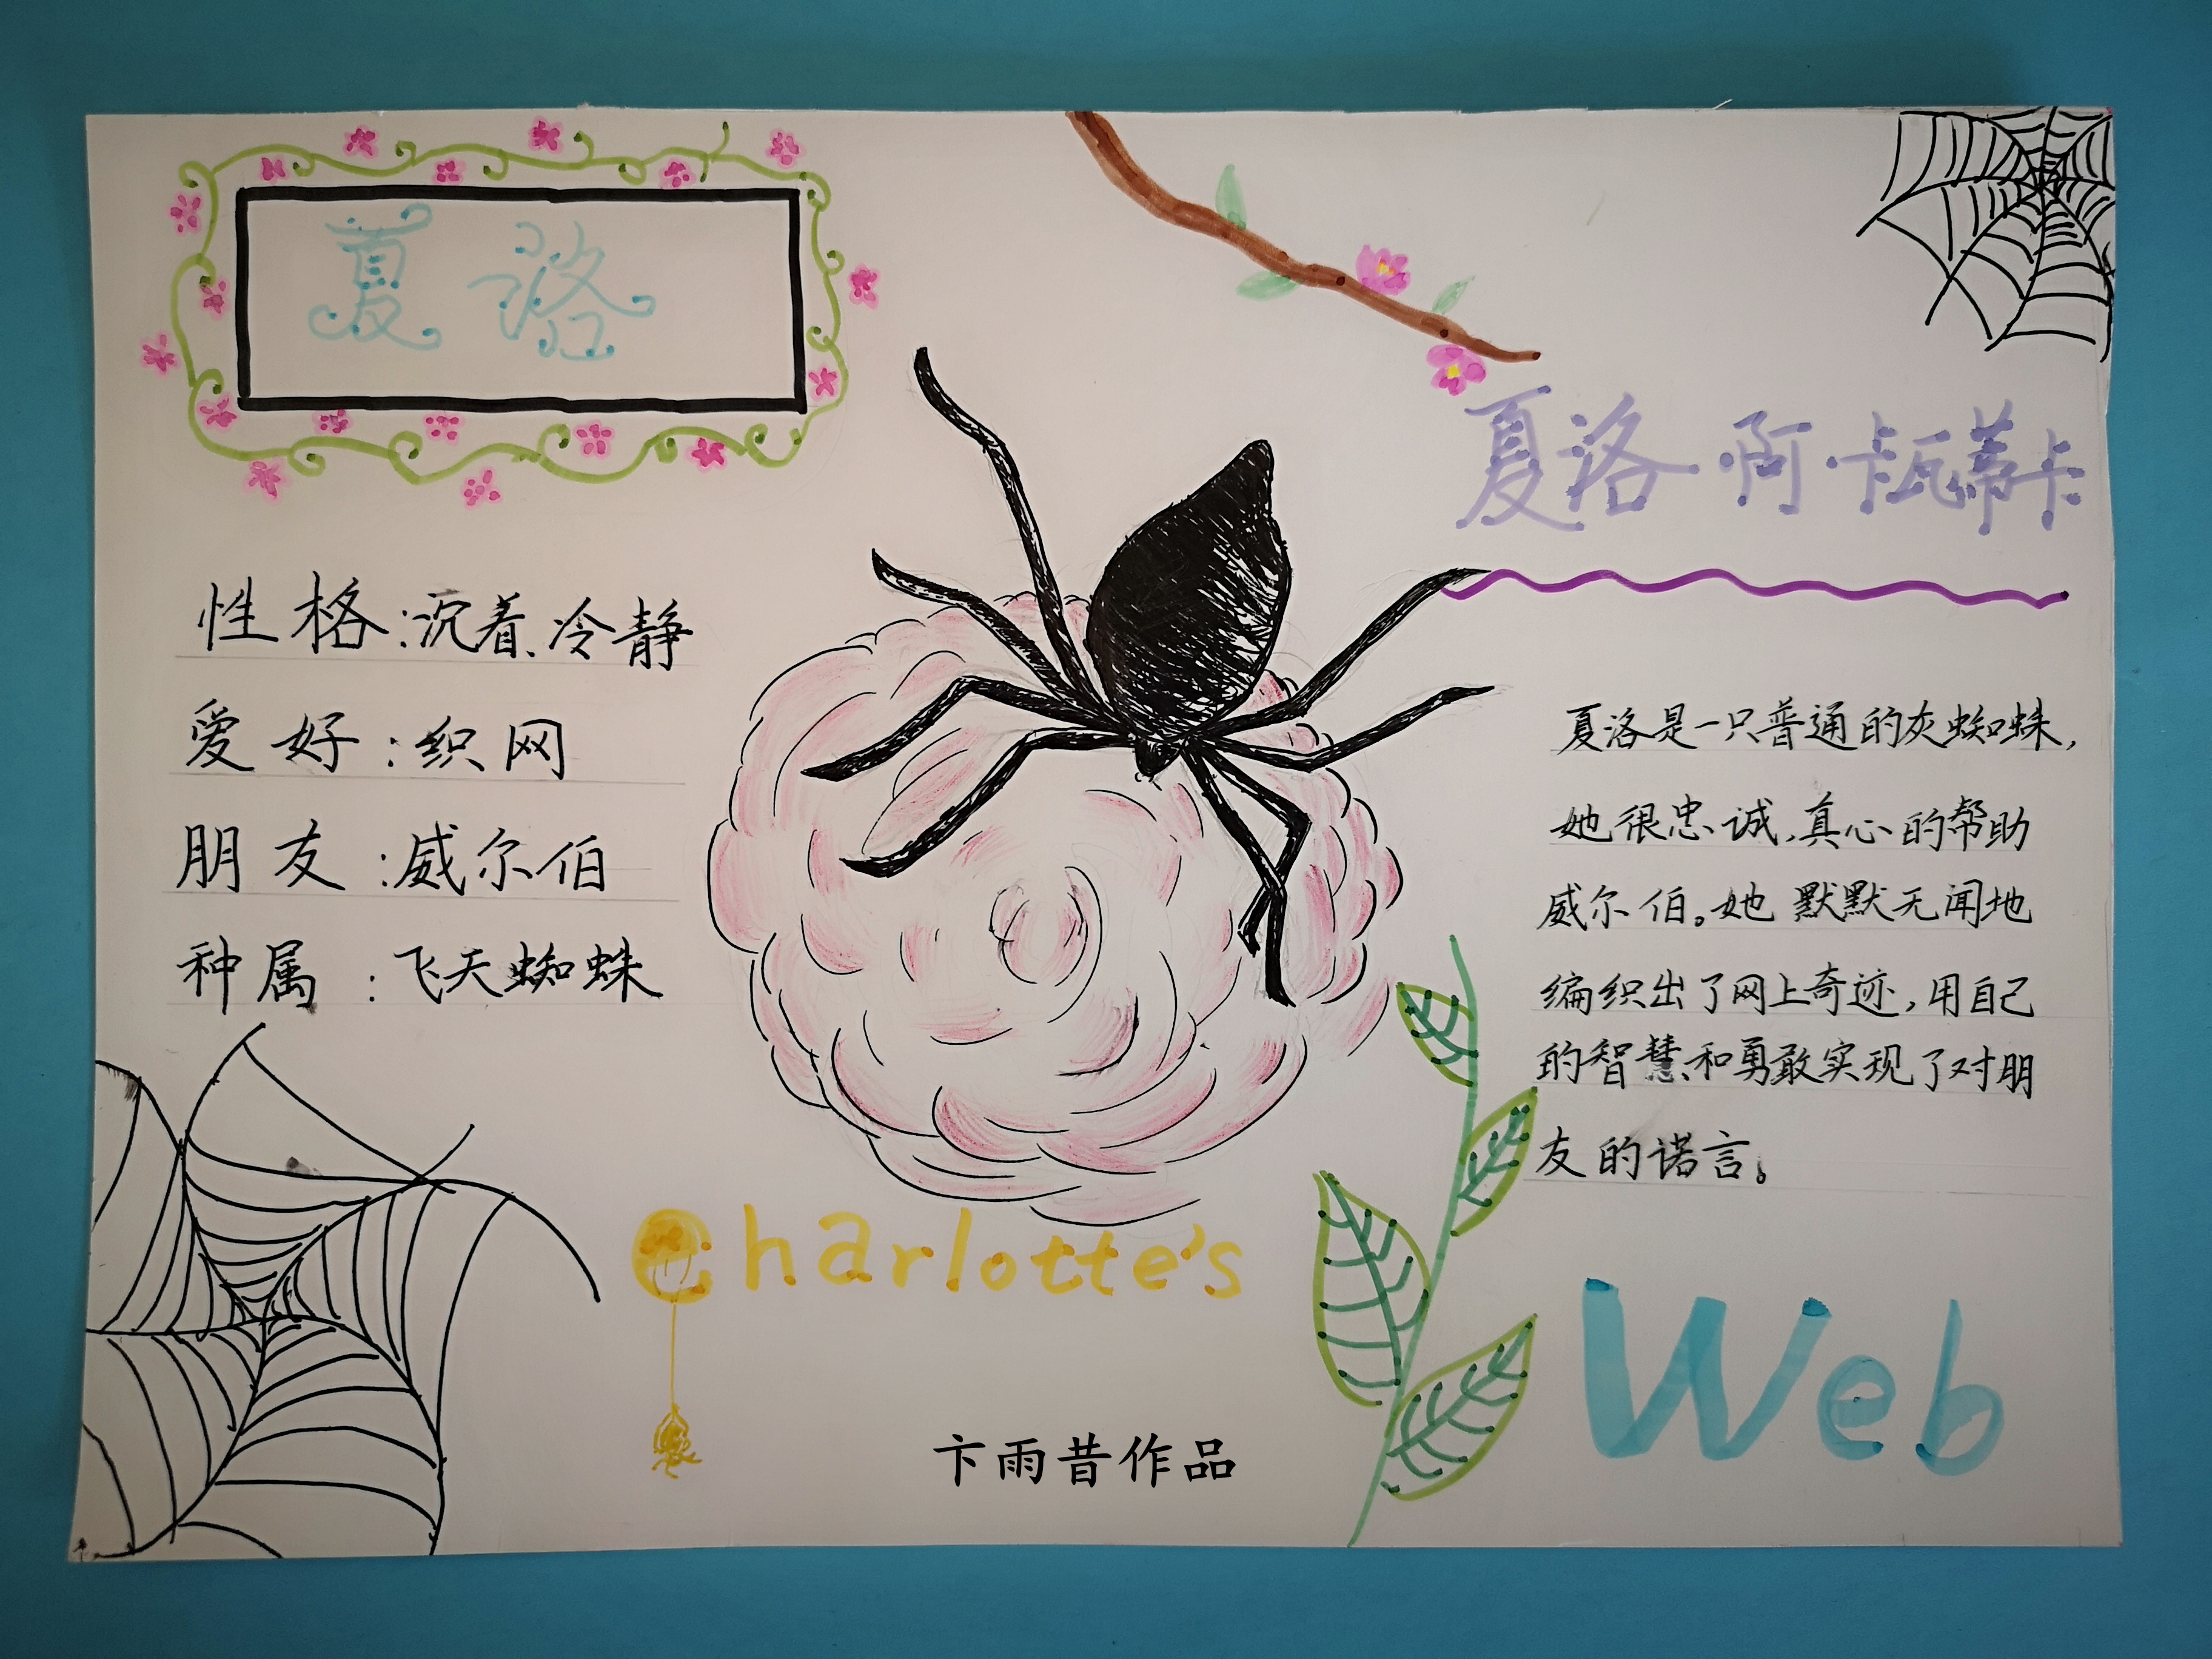 夏洛
性格:沉着、冷静
爱好:织网
朋友:威尔伯
种属:飞天蜘蛛
夏洛·阿·卡瓦蒂卡
夏洛是一只普通的灰蜘蛛,
她很忠诚,真心的帮助
威尔伯。她默默无闻地
编织出了网上奇迹,用自己
的智慧和勇敢实现了对朋
友的诺言。
Charlotte's
Web
卞雨昔作品